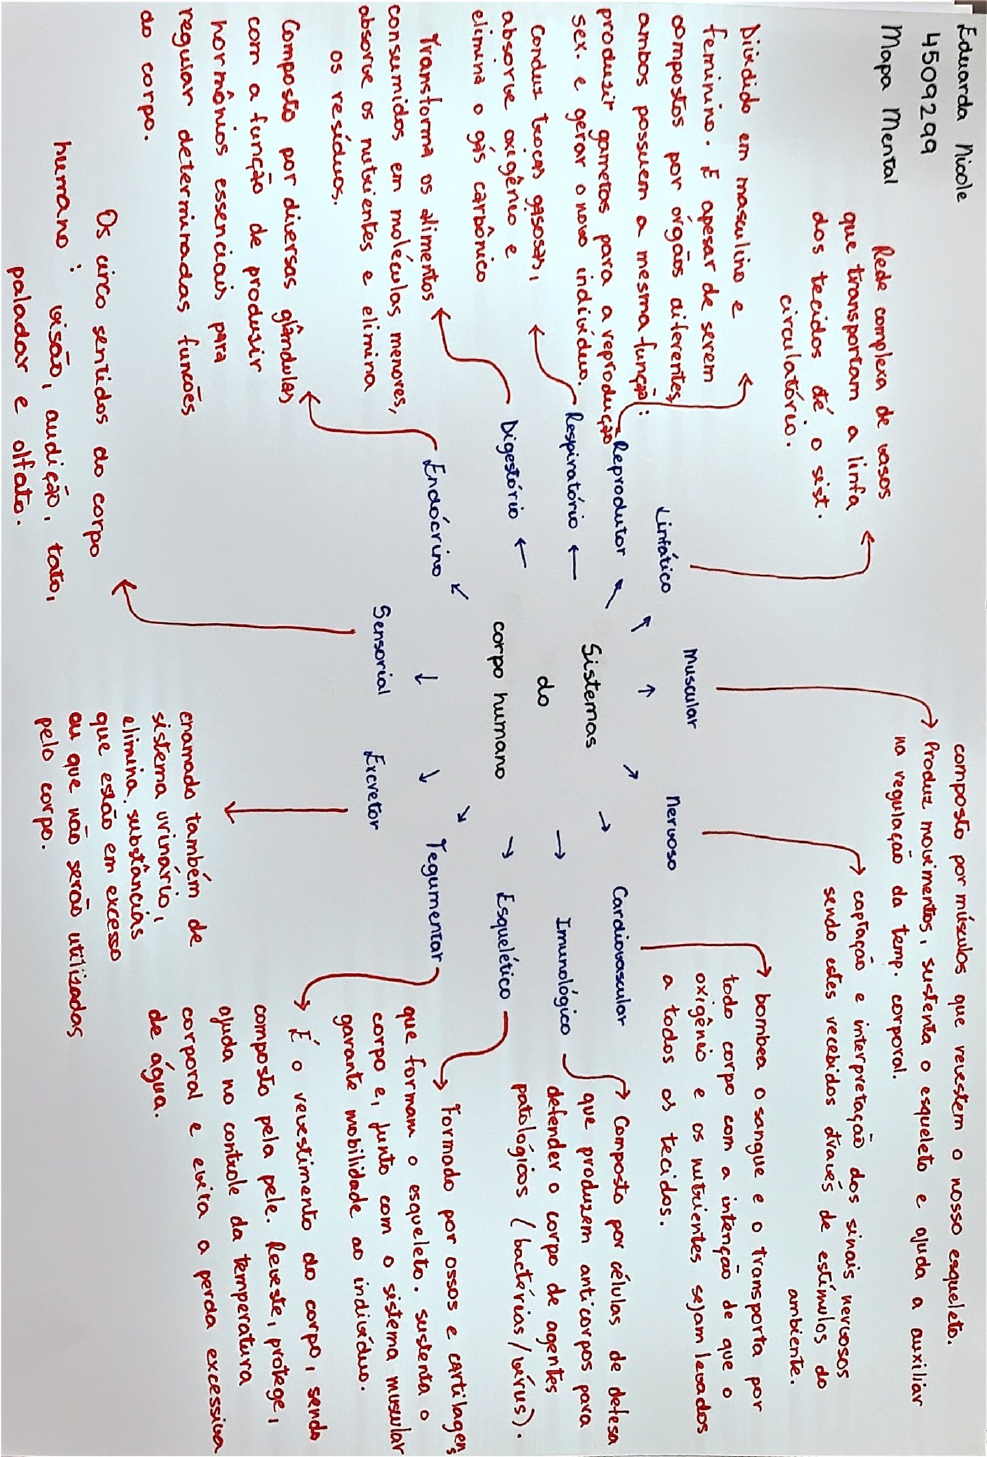 Eduarda Nicole
4509299
Mapa Mental
Sistemas
do
corpo humano
Linfático
Rede complexa de vasos
que transportam a linfa
dos tecidos até o sist.
circulatório.
Muscular
composto por músculos que revestem o nosso esqueleto.
Produz movimentos, sustenta o esqueleto e ajuda a auxiliar
na regulação da temp. corporal.
Nervoso
captação e interpretação dos sinais nervosos
sendo estes recebidos através de estímulos do
ambiente.
Cardiovascular
bombea o sangue e o transporta por
todo corpo com a intenção de que o
oxigênio e os nutrientes sejam levados
a todos os tecidos.
Imunológico
Composto por células de defesa
que produzem anticorpos para
defender o corpo de agentes
patológicos (bactérias/vírus).
Esquelético
Formado por ossos e cartilagens
que formam o esqueleto. sustenta o
corpo e, junto com o sistema muscular
garante mobilidade ao indivíduo.
Tegumentar
É o revestimento do corpo, sendo
composto pela pele. Reveste, protege,
ajuda no controle da temperatura
corporal e evita a perda excessiva
de água.
Excretor
chamado também de
sistema urinário,
elimina substâncias
que estão em excesso
ou que não serão utilizadas
pelo corpo.
Sensorial
Os cinco sentidos do corpo
humano: visão, audição, tato,
paladar e olfato.
Endócrino
Composto por diversas glândulas
com a função de produzir
hormônios essenciais para
regular determinadas funções
do corpo.
Digestório
Transforma os alimentos
consumidos em moléculas menores,
absorve os nutrientes e elimina
os resíduos.
Respiratório
Conduz trocas gasosas,
absorve oxigênio e
elimina o gás carbônico
Reprodutor
Dividido em masculino e
feminino. E apesar de serem
compostos por órgãos diferentes,
ambos possuem a mesma função:
produzir gametos para a reprodução
sex. e gerar o novo indivíduo.